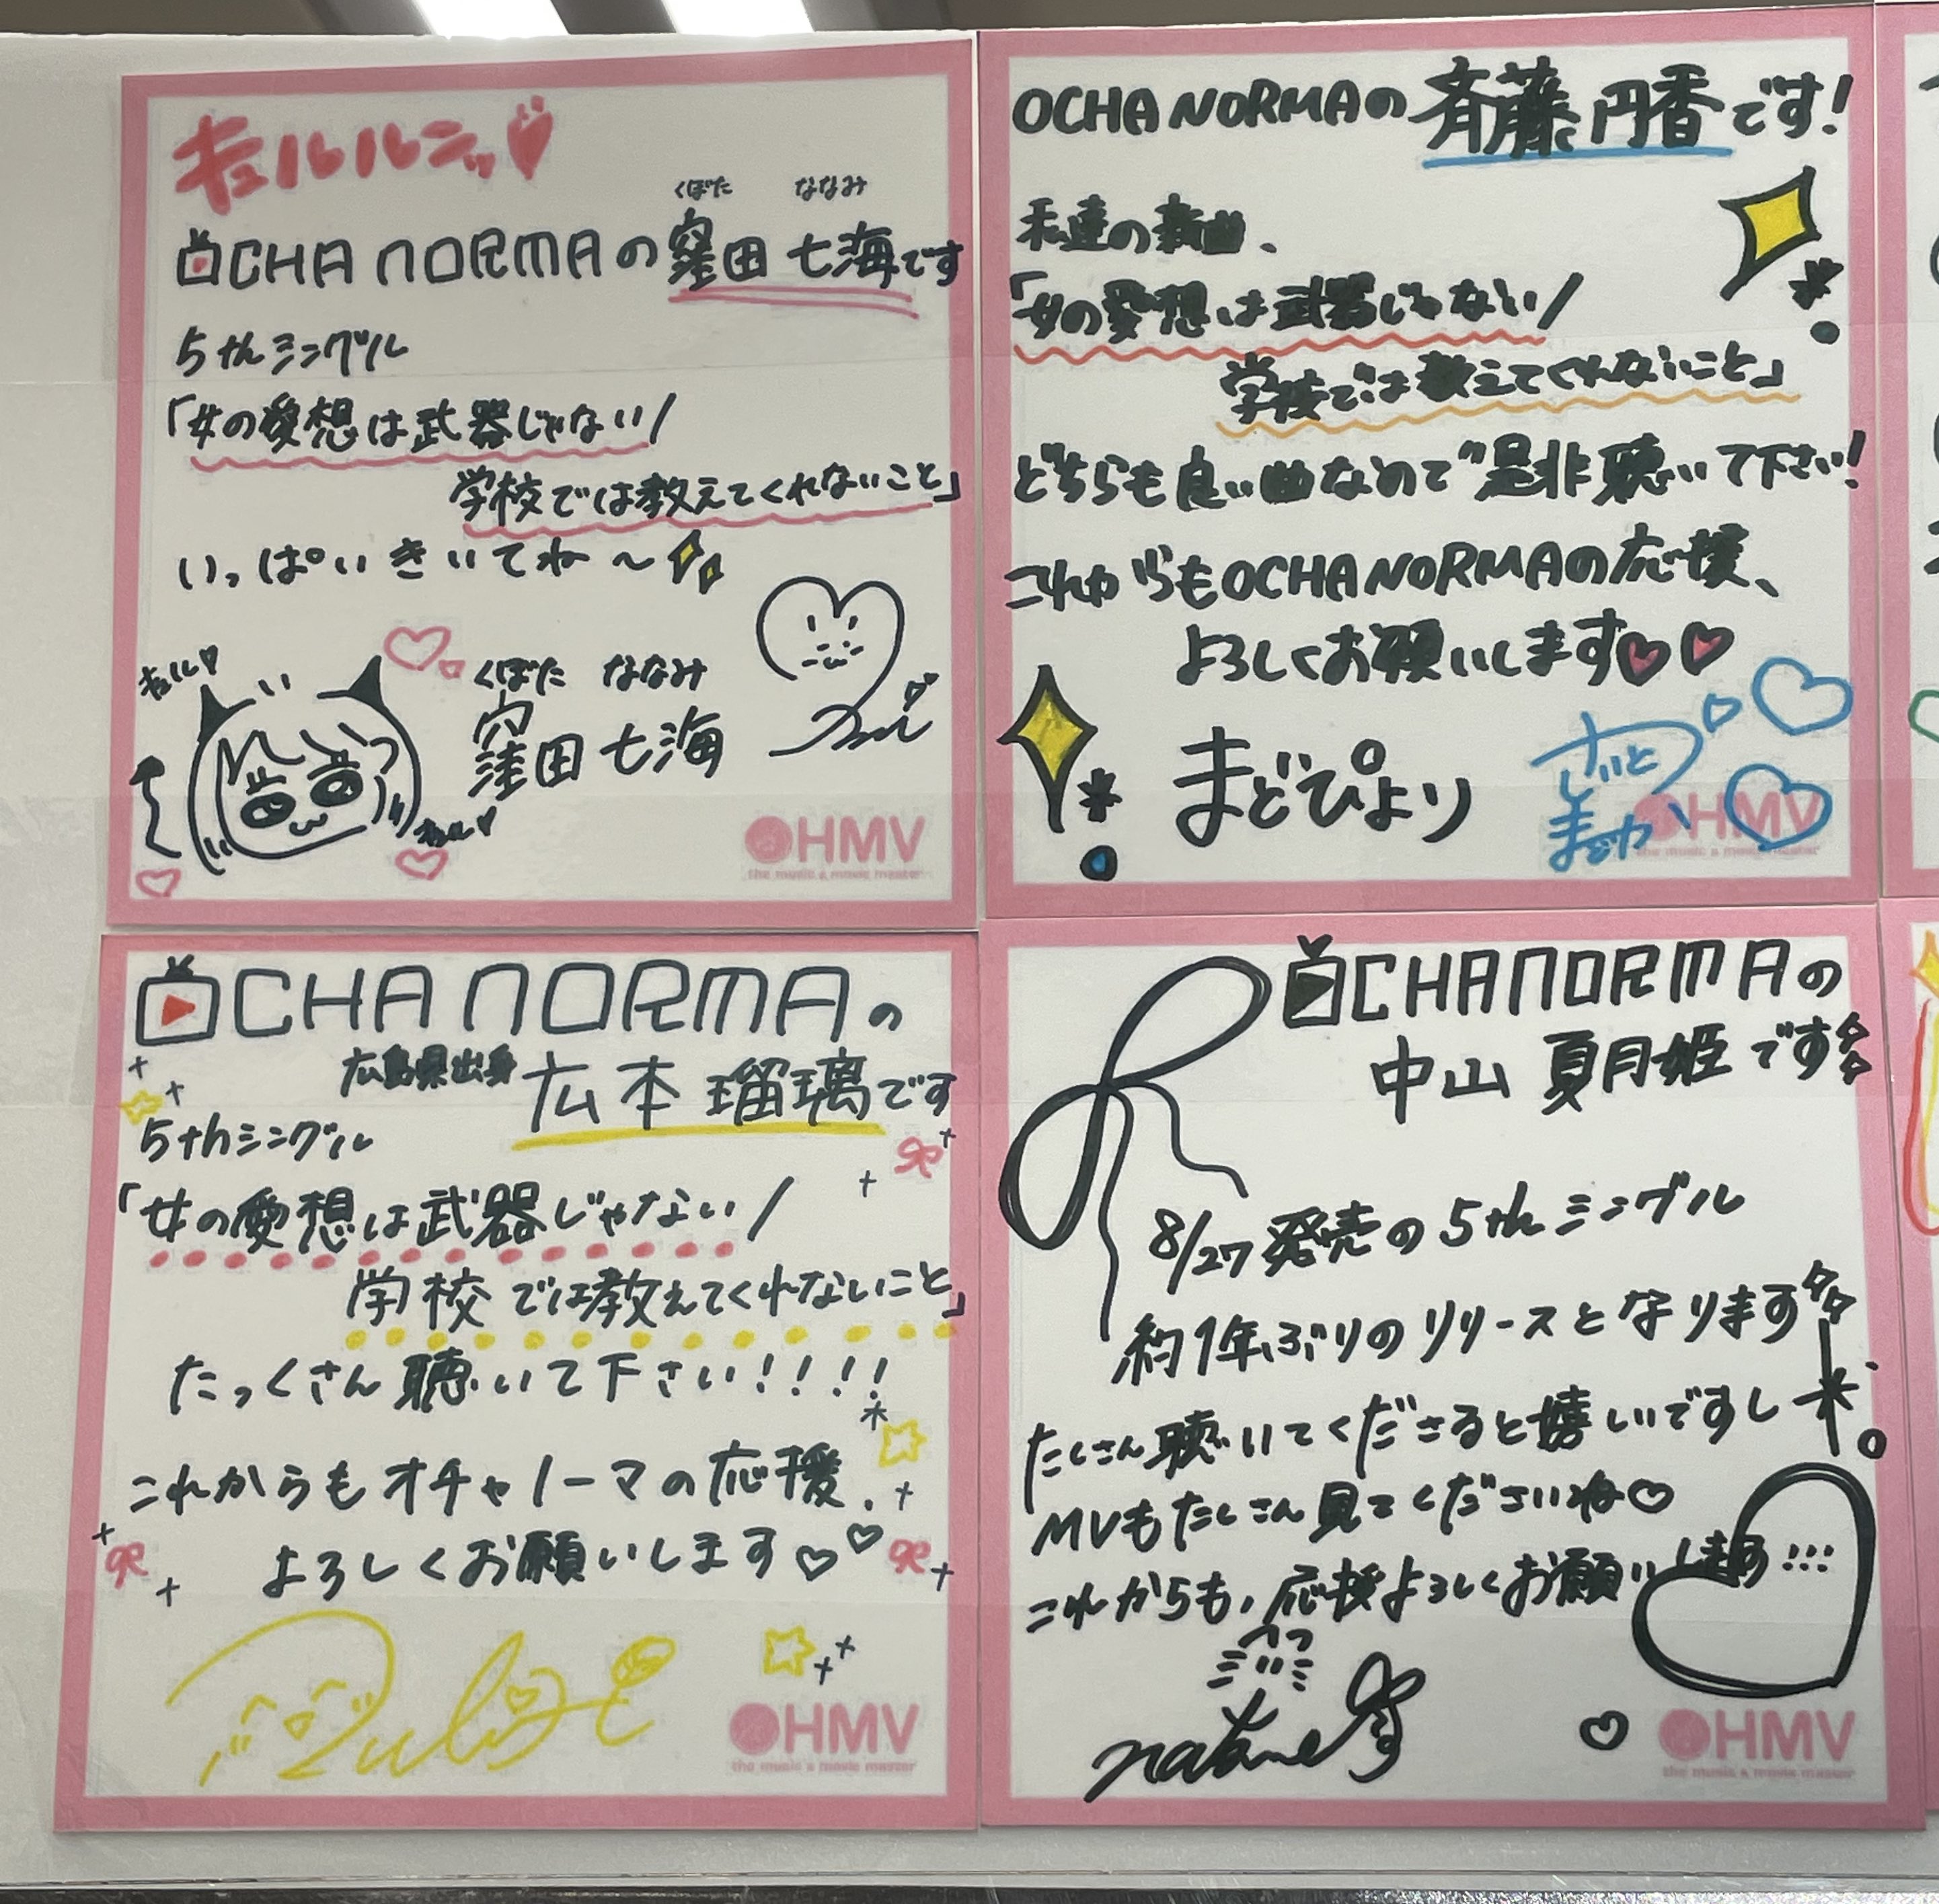 キュルルニッ
くぼた ななみ
OCHA NORMAの窪田 七海です
5thシングル
「女の愛想は武器じゃない/
学校では教えてくれないこと」
いっぱいきいてね〜
キュル
くぼた ななみ
窪田 七海
キュル
HMV
the music & movie master
OCHA NORMAの斉藤 円香です!
私達の新曲、
「女の愛想は武器じゃない/
学校では教えてくれないこと」
どちらも良い曲なので是非聴いて下さい!
これからもOCHA NORMAの応援、
よろしくお願いします
まどぴより
さいと
まどか
HMV
the music & movie master
OCHA NORMAの
広島県出身 広本 瑠璃です
5thシングル
「女の愛想は武器じゃない/
学校では教えてくれないこと」
たっくさん聴いて下さい!!!!
これからもオチャノーマの応援、
よろしくお願いします
HMV
the music & movie master
OCHA NORMAの
中山 夏月姫です
8/27発売の5thシングル
約1年ぶりのリリースとなります
たくさん聴いてくださると嬉しいですし
MVもたくさん見てくださいね
これからも、応援よろしくお願いします!!!
natsume
HMV
the music & movie master